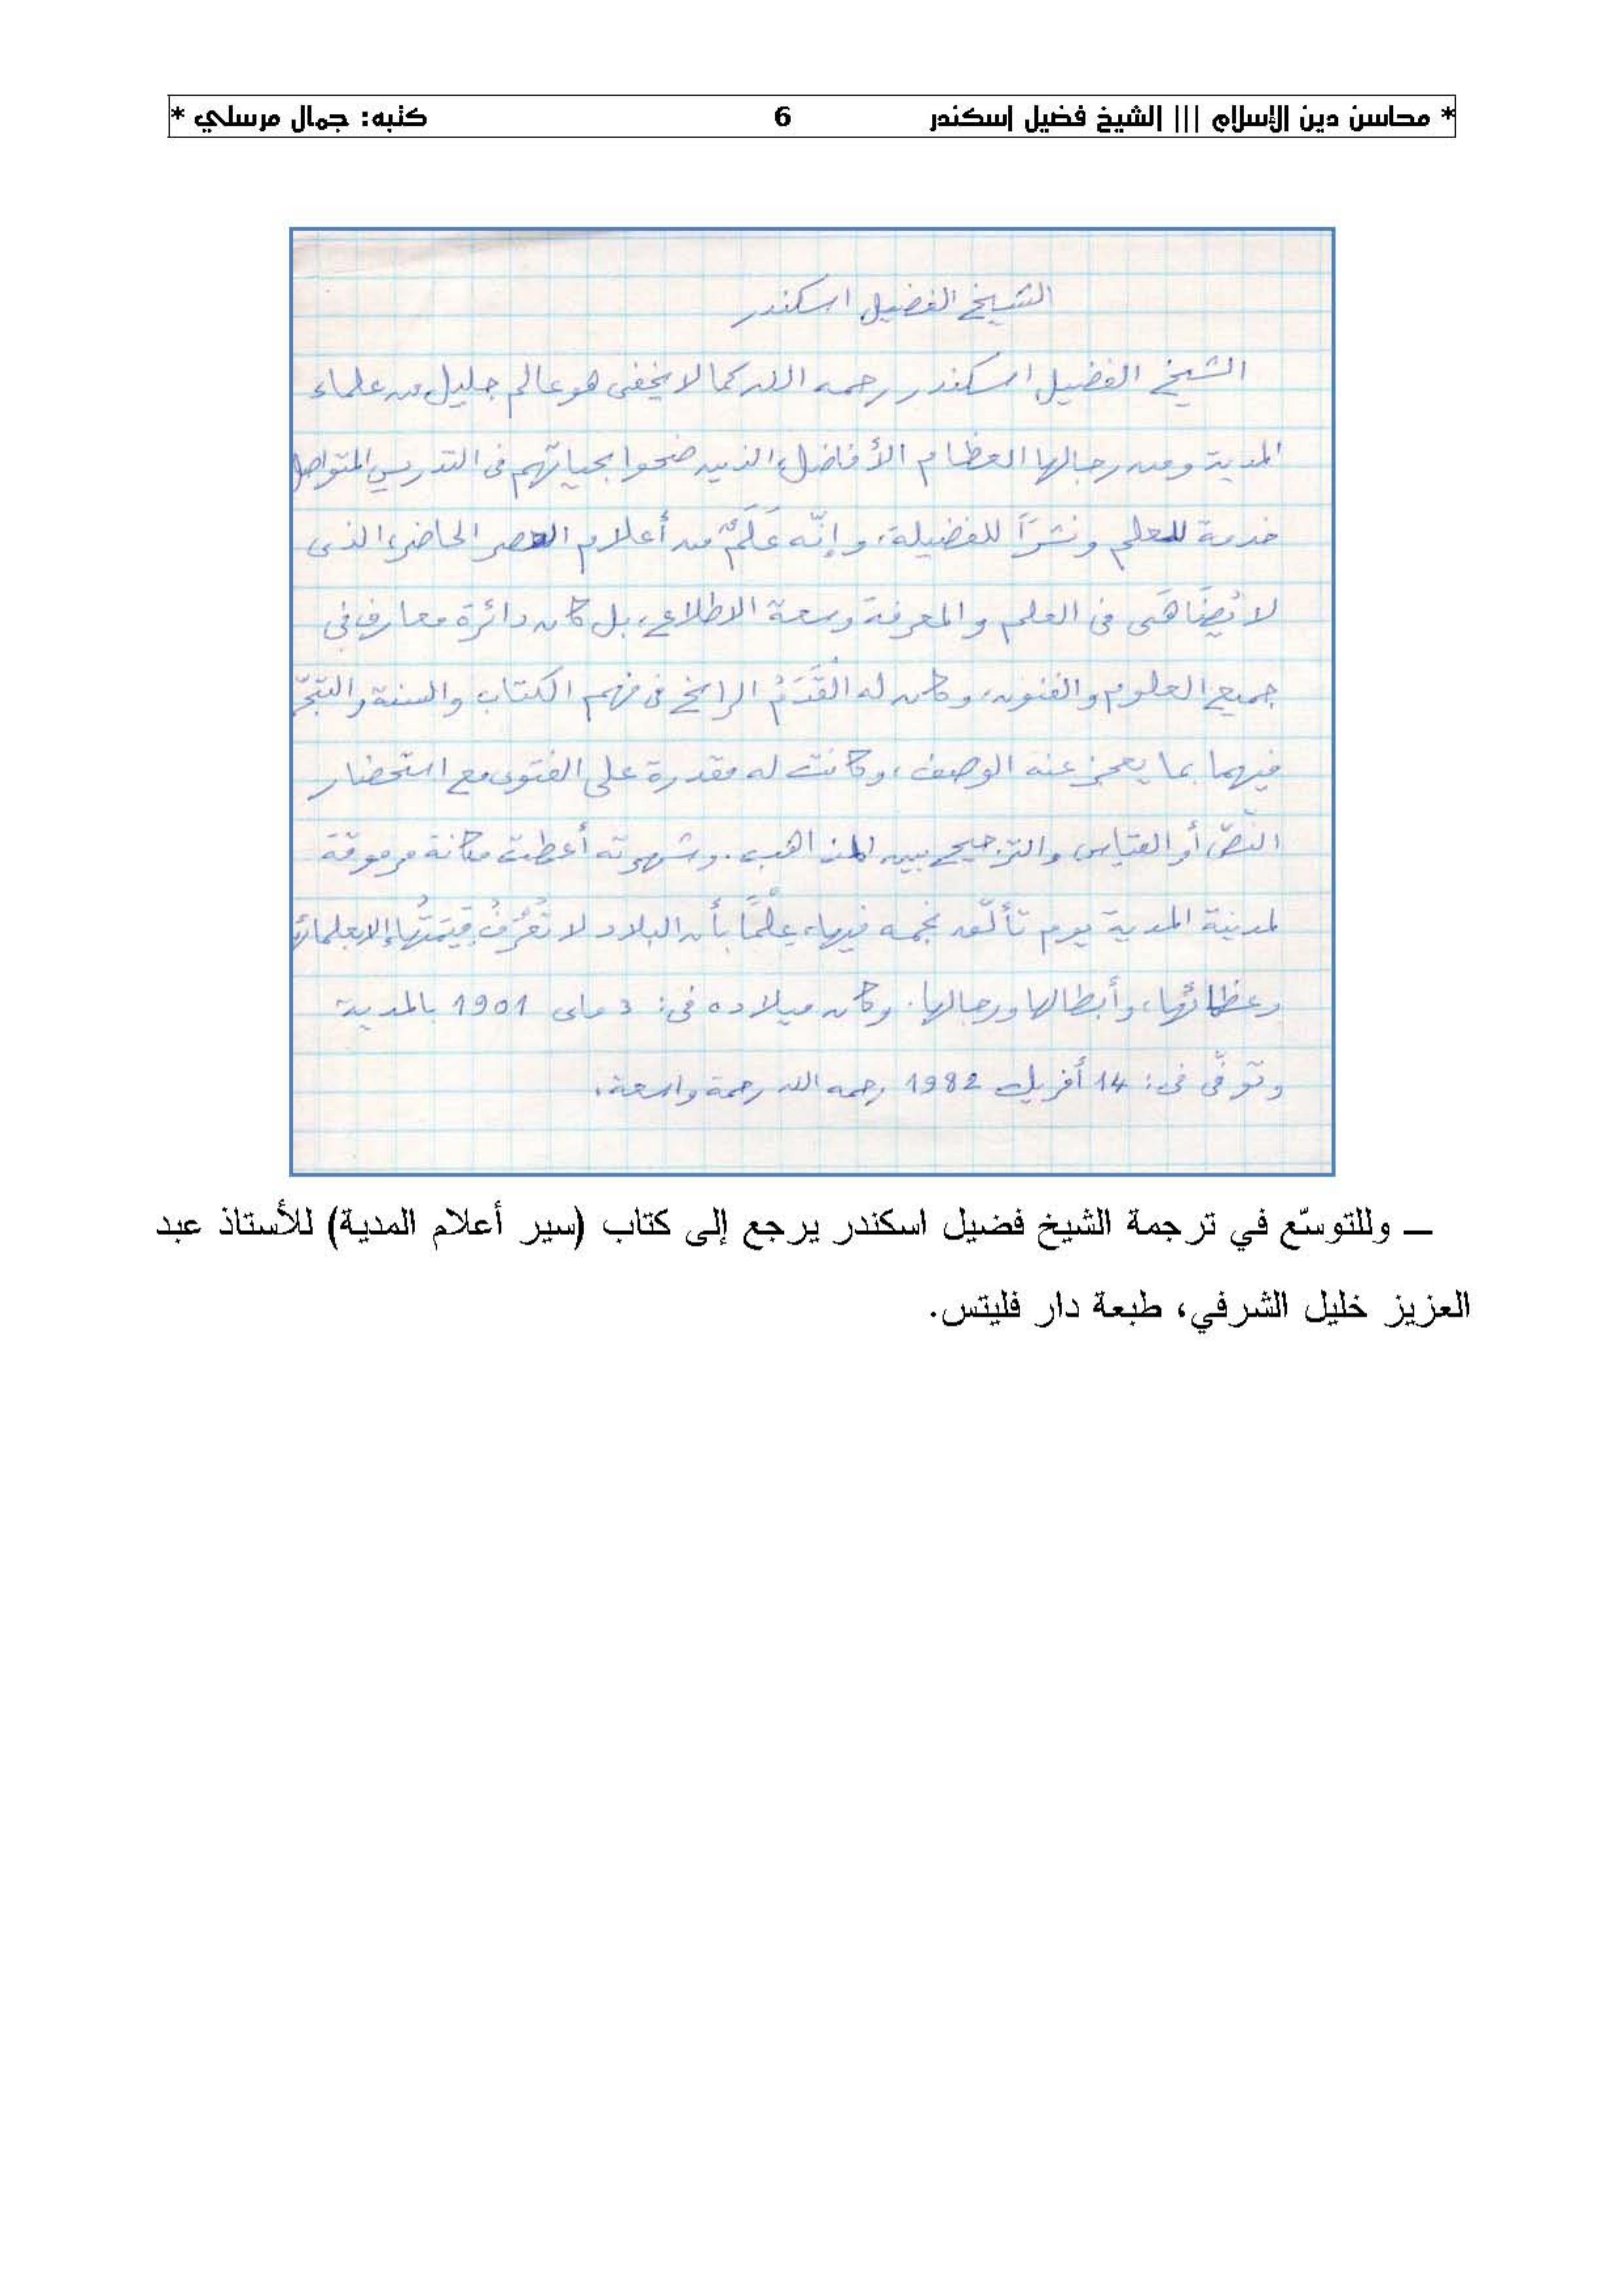 * محاسن دين الإسلام ||| الشيخ فضيل إسكندر 6 كتبه: جمال مرسلي *
الشيخ الفضيل اسكندر
الشيخ الفضيل اسكندر رحمه الله كما لا يخفى هو عالم جليل من علماء
المدية ومن رجالها العظام الأفاضل، الذين ضحوا بحياتهم في التدريس المتواصل
خدمة للعلم ونشرًا للفضيلة، وإنّه عَلَمٌ من أعلام العصر الحاضر، الذي
لا يُضَاهَى في العلم والمعرفة وسعة الاطلاع، بل كان دائرة معارف في
جميع العلوم والفنون، وكان له القَدَمُ الراسخ في فهم الكتاب والسنة والتبحّر
فيهما بما يعجز عنه الوصف، وكانت له مقدرة على الفتوى مع استحضار
النّصّ أو القياس والترجيح بين المذاهب. وشهرته أعطت مكانة مرموقة
لمدينة المدية يوم تألّق نجمه فيها، عِلْمًا بأن البلاد لا تُعْرَفُ قِيمَتُهَا إلا بعلمائها
وعظمائها، وأبطالها ورجالها. وكان ميلاده في: 3 ماي 1901 بالمدية
وتوفّي في: 14 أفريل 1982 رحمه الله رحمة واسعة.
ــ وللتوسّع في ترجمة الشيخ فضيل اسكندر يرجع إلى كتاب (سير أعلام المدية) للأستاذ عبد
العزيز خليل الشرفي، طبعة دار فليتس.